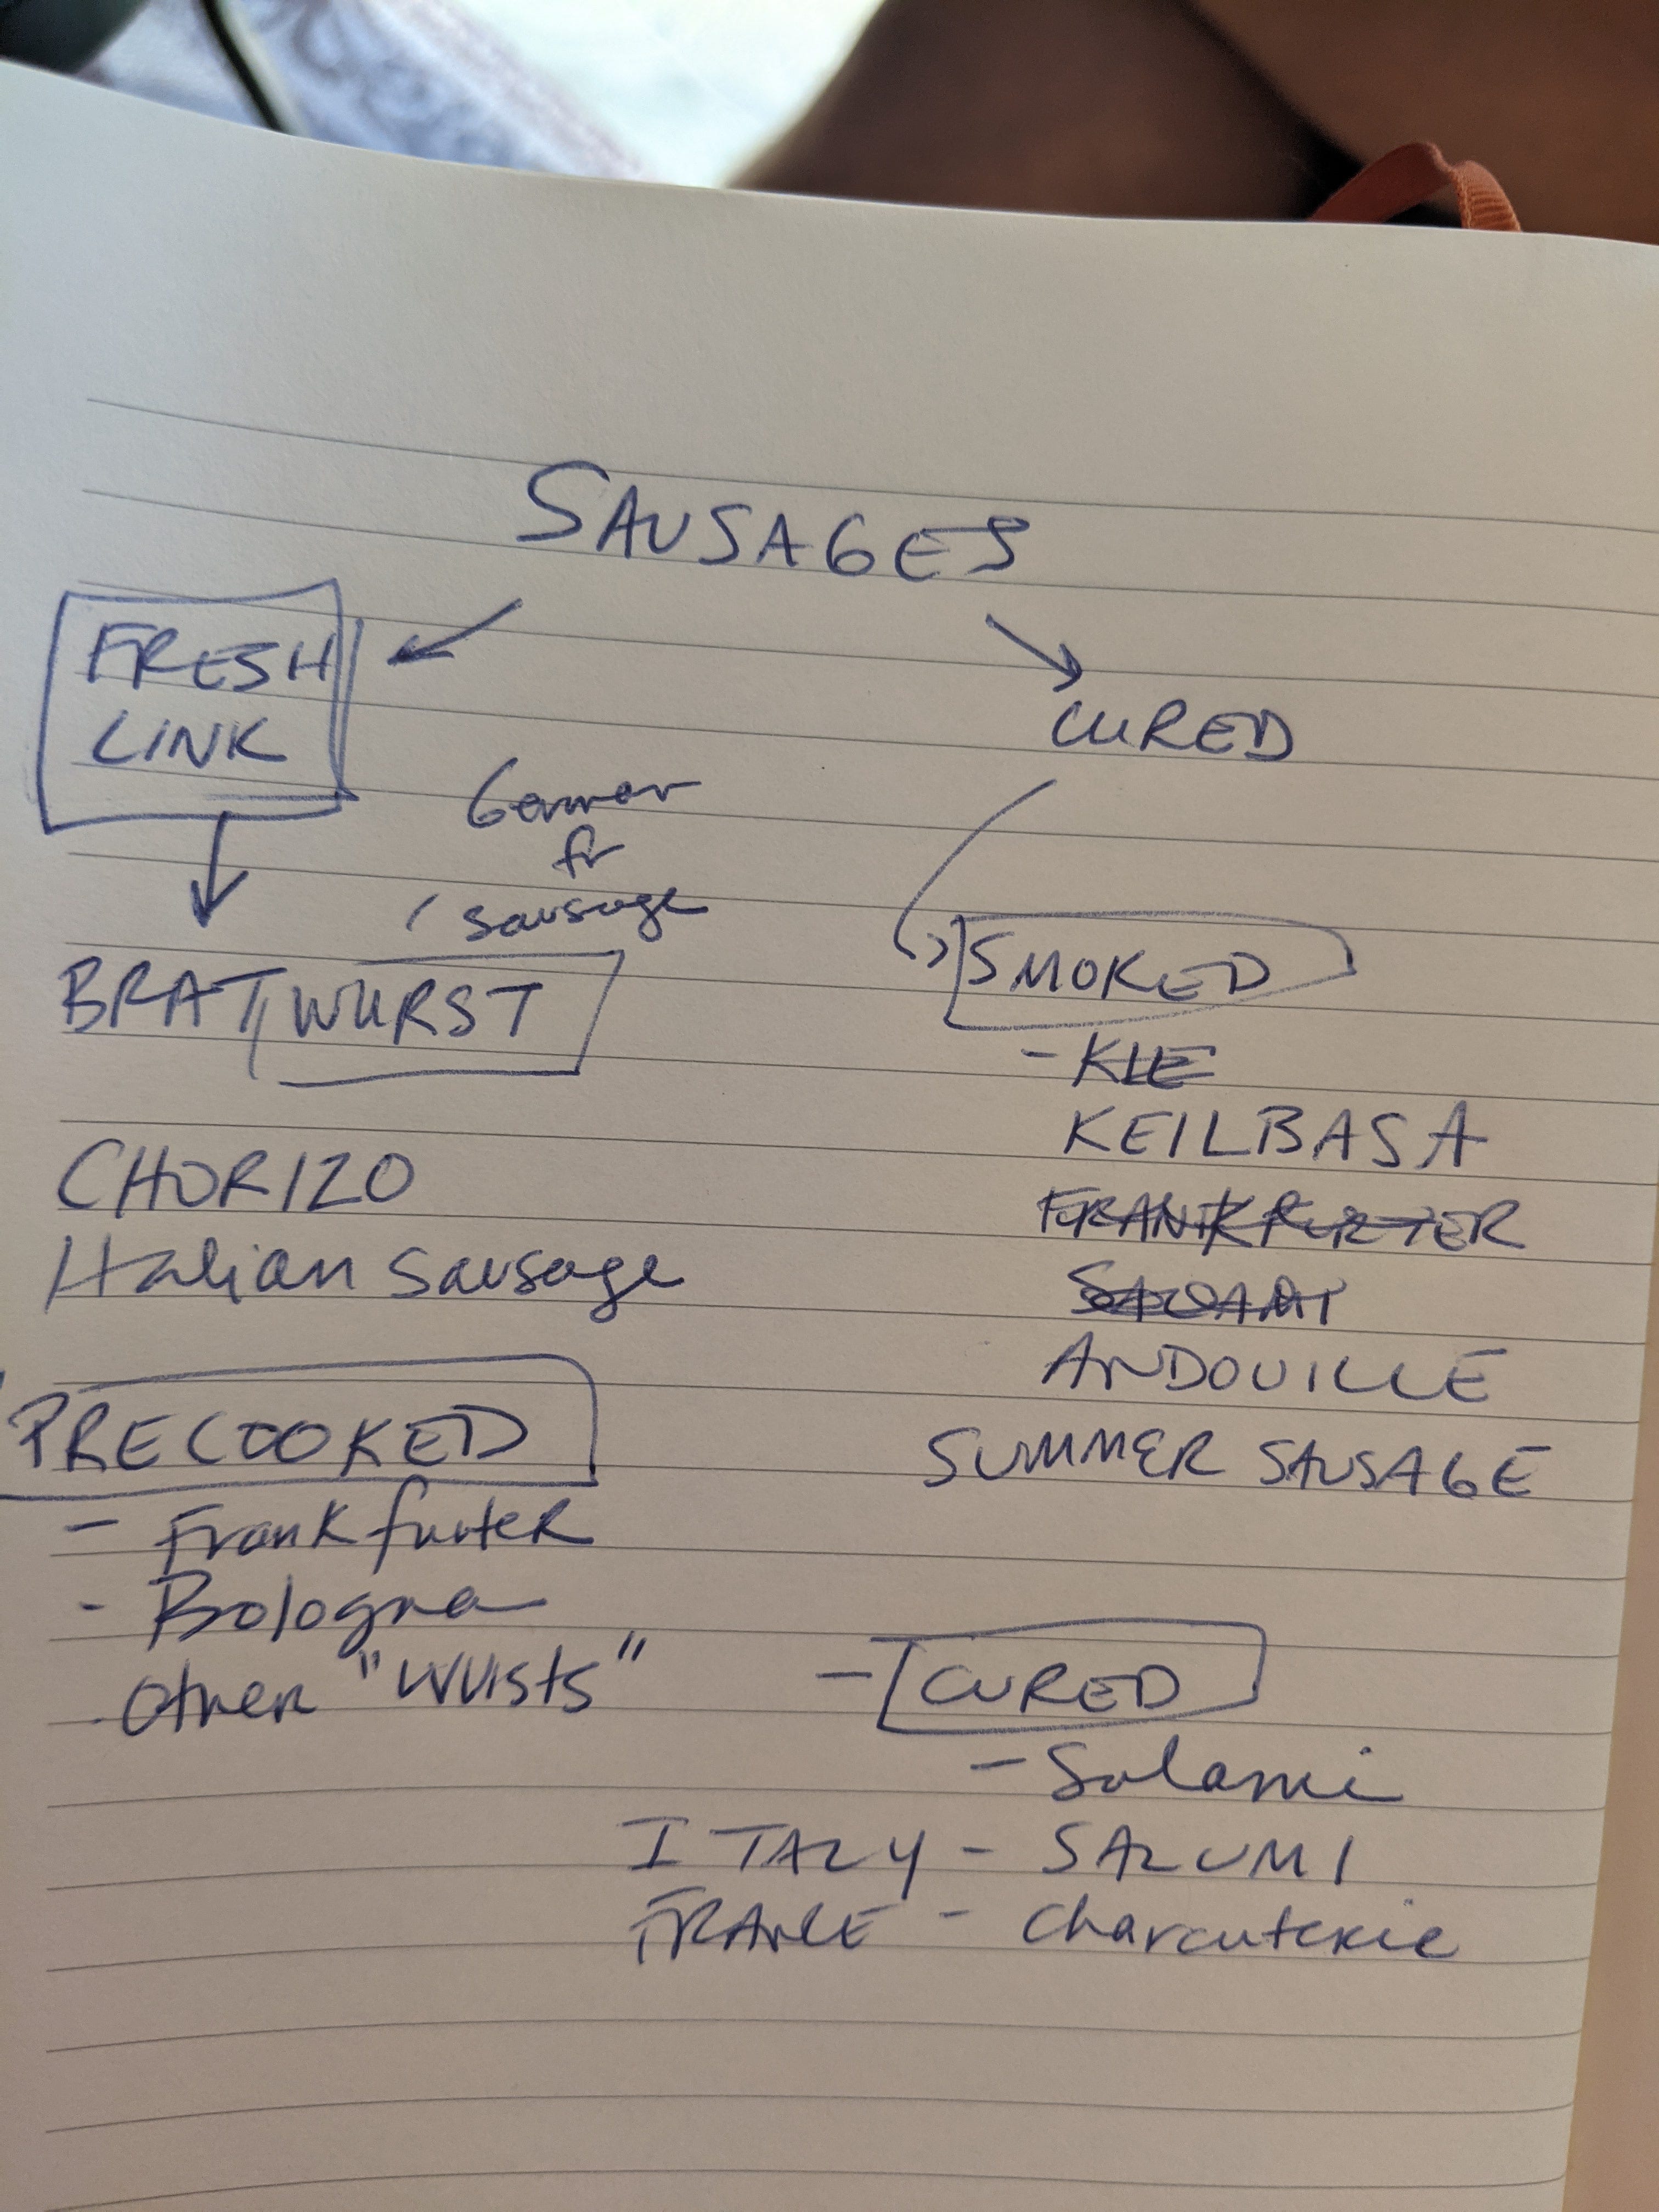 SAUSAGES
FRESH
LINK
CURED
German
fr
sausage
BRATWURST
CHORIZO
Italian sausage
PRECOOKED
- Frankfurter
- Bologna
Other "Wursts"
SMOKED
- KIE
KEILBASA
FRANKFURTER
SALAMI
ANDOUILLE
SUMMER SAUSAGE
- CURED
- Salami
ITALY - SALUMI
FRANCE - Charcuterie